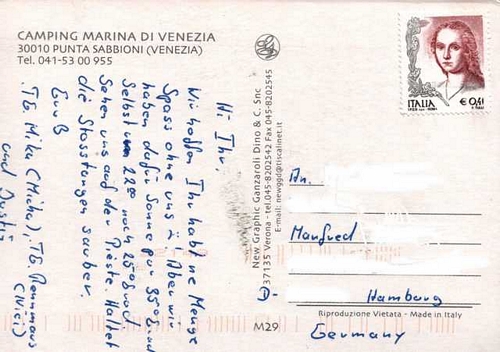 CAMPING MARINA DI VENEZIA
30010 PUNTA SABBIONI (VENEZIA)
Tel. 041-53 00 955
Hi Ihr,
Wir hoffen Ihr habt ne Menge
Spass ohne uns ü! Aber wir
haben dafür Sonne pur 35 Grad
Selbst um 22°° noch 25 Grad
Sehen uns auf der Pieste. Haltet
die Stosstangen sauber.
Gruß
T.B. Mika (Micha), T.B.
und Justin (Nici)
New Graphic Ganzaroli Dino & C. Snc
37135 Verona - tel.045-8202542 Fax 045-8202545
E-mail: newggd@tiscalinet.it
ITALIA
€ 0,41
An.
Manfred
D-
Hamburg
Germany
Riproduzione Vietata - Made in Italy
M29